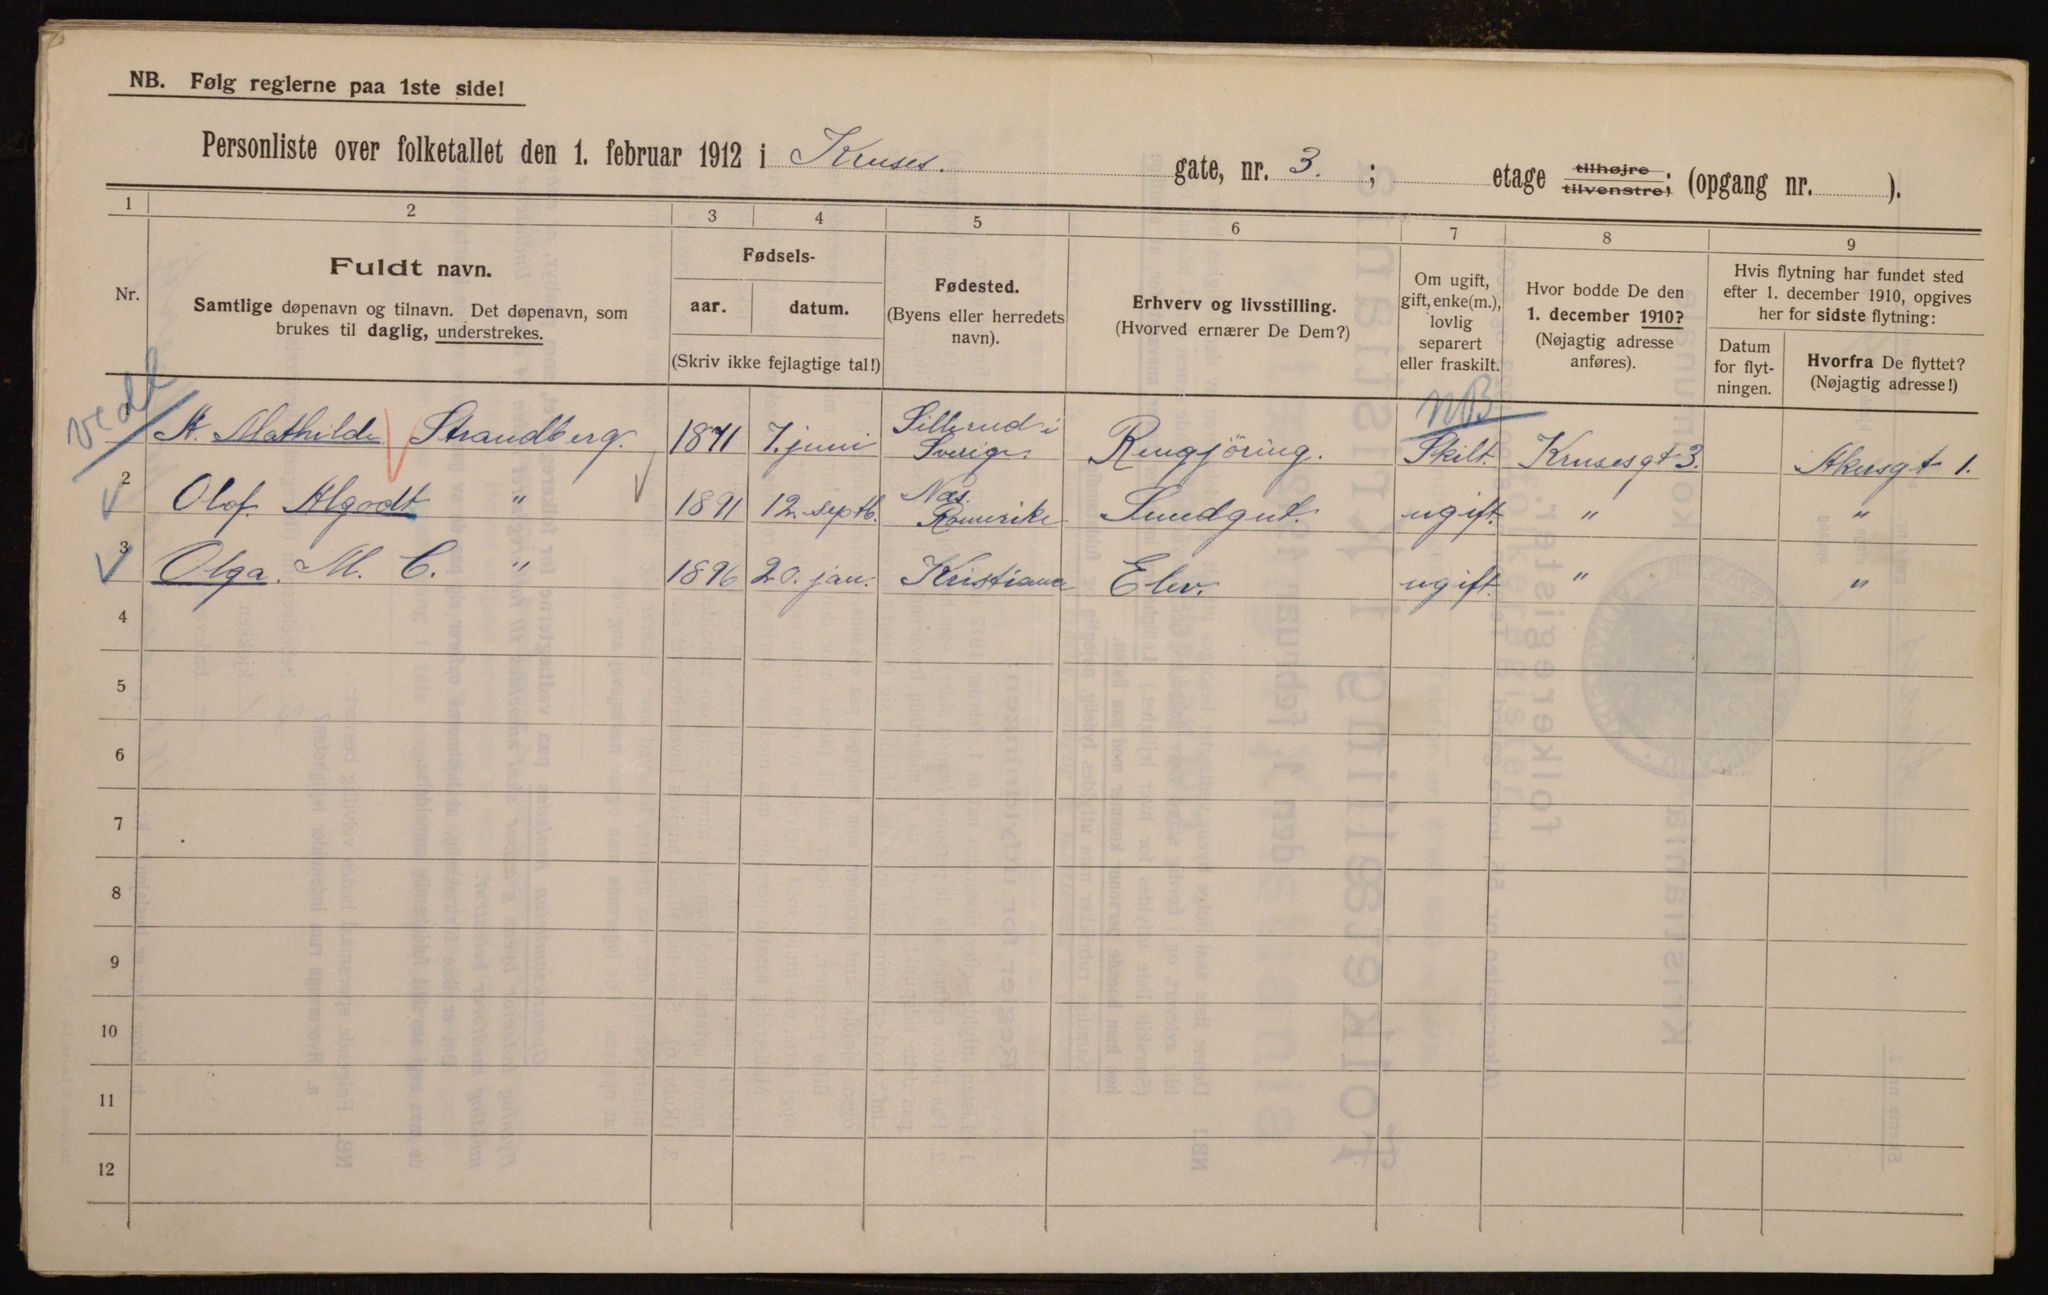 NB. Følg reglerne paa 1ste side!
Personliste over folketallet den 1. februar 1912 i Kruses. gate, nr. 3. ; etage tilhøjre tilvenstre; (opgang nr. ).
1 2 3 4 5 6 7 8 9
Nr.
Fuldt navn.
Samtlige døpenavn og tilnavn. Det døpenavn, som
brukes til daglig, understrekes.
Fødsels-
aar. datum.
(Skriv ikke fejlagtige tal!)
Fødested.
(Byens eller herredets
navn).
Erhverv og livsstilling.
(Hvorved ernærer De Dem?)
Om ugift,
gift, enke(m.),
lovlig
separert
eller fraskilt.
Hvor bodde De den
1. december 1910?
(Nøjagtig adresse
anføres).
Hvis flytning har fundet sted
efter 1. december 1910, opgives
her for sidste flytning:
Datum
for flyt-
ningen.
Hvorfra De flyttet?
(Nøjagtig adresse!)
vedl
NB
1 A. Mathilde Strandberg. 1871 7. juni Sillerud i Sverige. Rengjöring. Skilt. Krusesgt 3. Akersgt 1.
2 Olof. Algodt " 1891 12. septb. Næs. Romerike ugift. " "
3 Olga. M. C. " 1896 20. jan. Kristiania Elev. ugift. " "
4
5
6
7
8
9
10
11
12